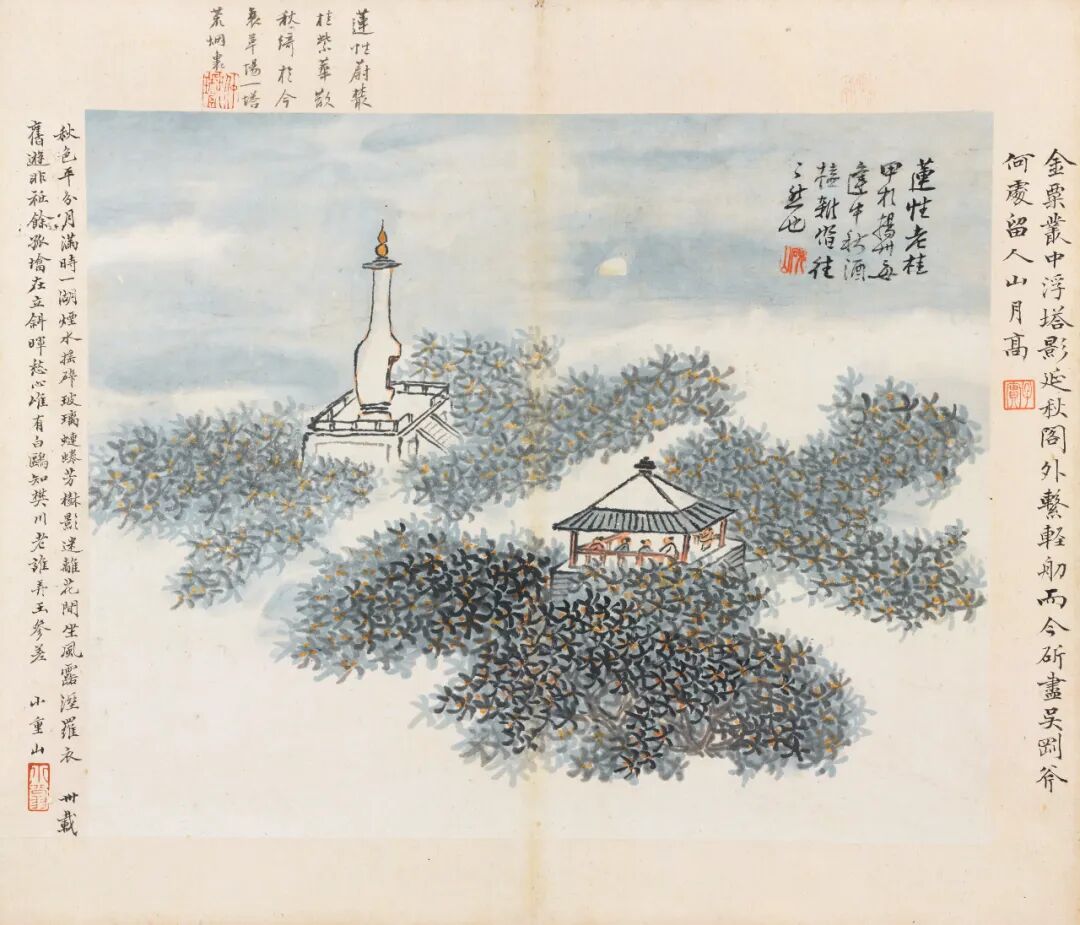 蓮性老桂
甲於揚州每
逢中秋酒
榼斝偕往
之然也
金粟叢中浮塔影延秋閣外繫輕舠而今斫盡吳剛斧
何處留人山月高
蓮性蔚叢
桂紫華歆
秋綺於今
衰草陽一塔
荒烟裏
秋色平分月滿時一湖煙水搖碎玻璃婕蠊芳樹影迷離花間坐風露溼羅衣 卅載
舊遊非祗餘孤墖在立斜暉愁心唯有白鷗知樊川老誰弄玉參差 小重山